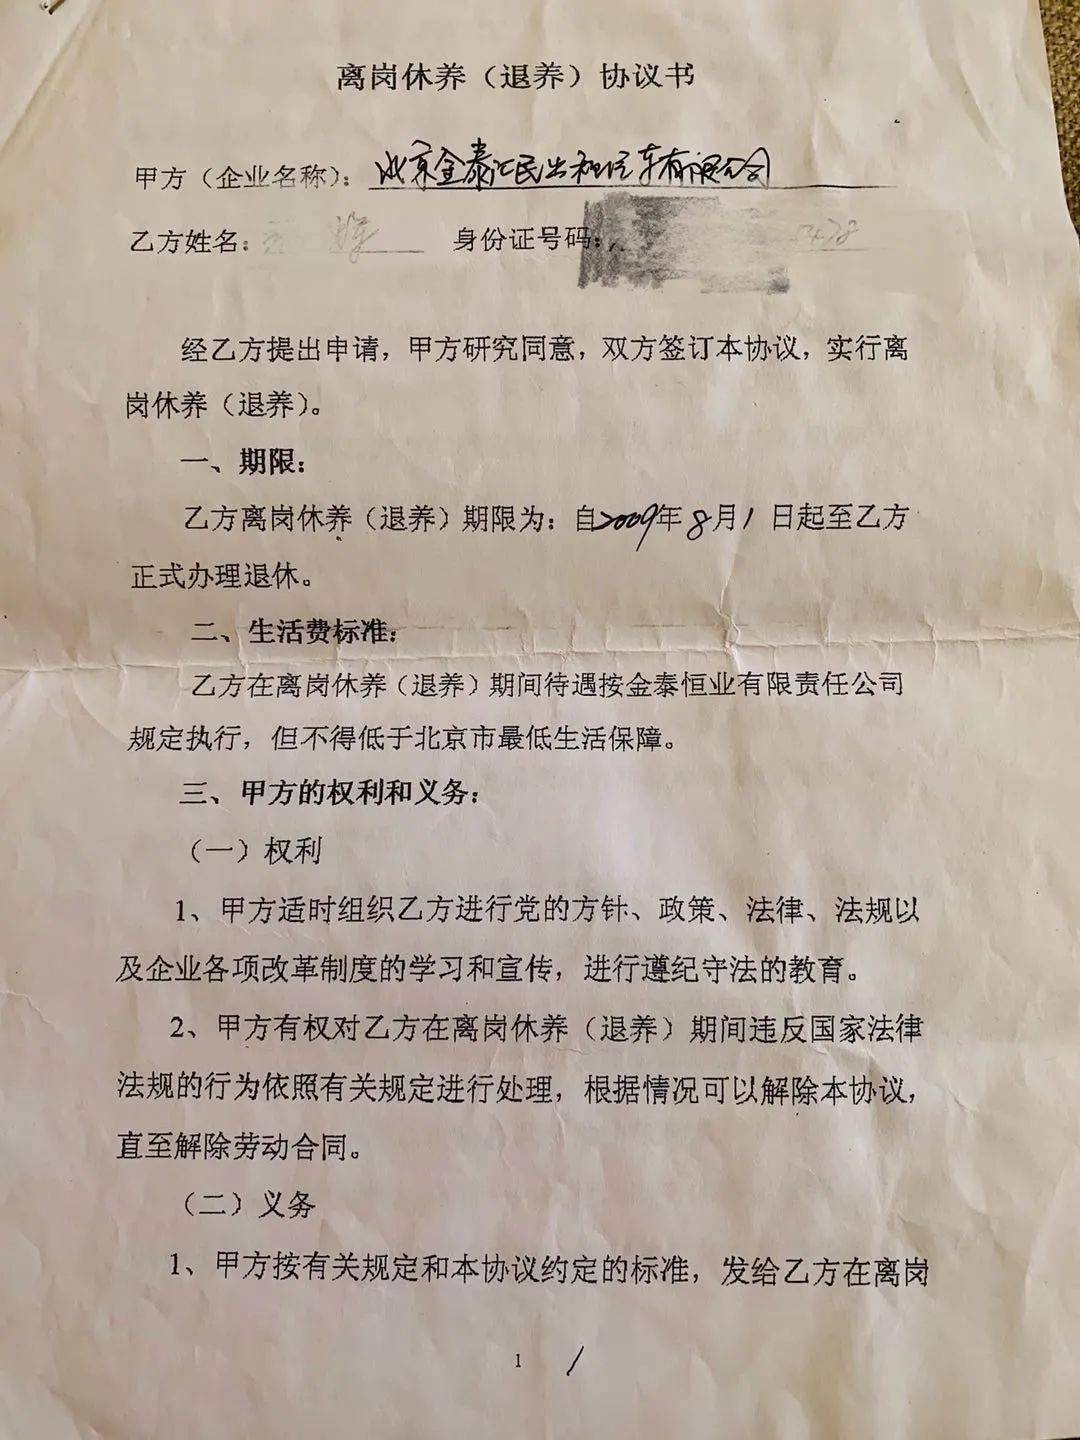 离岗休养（退养）协议书
甲方（企业名称）：北京金泰汇民出租汽车有限公司
乙方姓名： 身份证号码：
经乙方提出申请，甲方研究同意，双方签订本协议，实行离
岗休养（退养）。
一、期限：
乙方离岗休养（退养）期限为：自2009年8月1日起至乙方
正式办理退休。
二、生活费标准：
乙方在离岗休养（退养）期间待遇按金泰恒业有限责任公司
规定执行，但不得低于北京市最低生活保障。
三、甲方的权利和义务：
（一）权利
1、甲方适时组织乙方进行党的方针、政策、法律、法规以
及企业各项改革制度的学习和宣传，进行遵纪守法的教育。
2、甲方有权对乙方在离岗休养（退养）期间违反国家法律
法规的行为依照有关规定进行处理，根据情况可以解除本协议，
直至解除劳动合同。
（二）义务
1、甲方按有关规定和本协议约定的标准，发给乙方在离岗
1